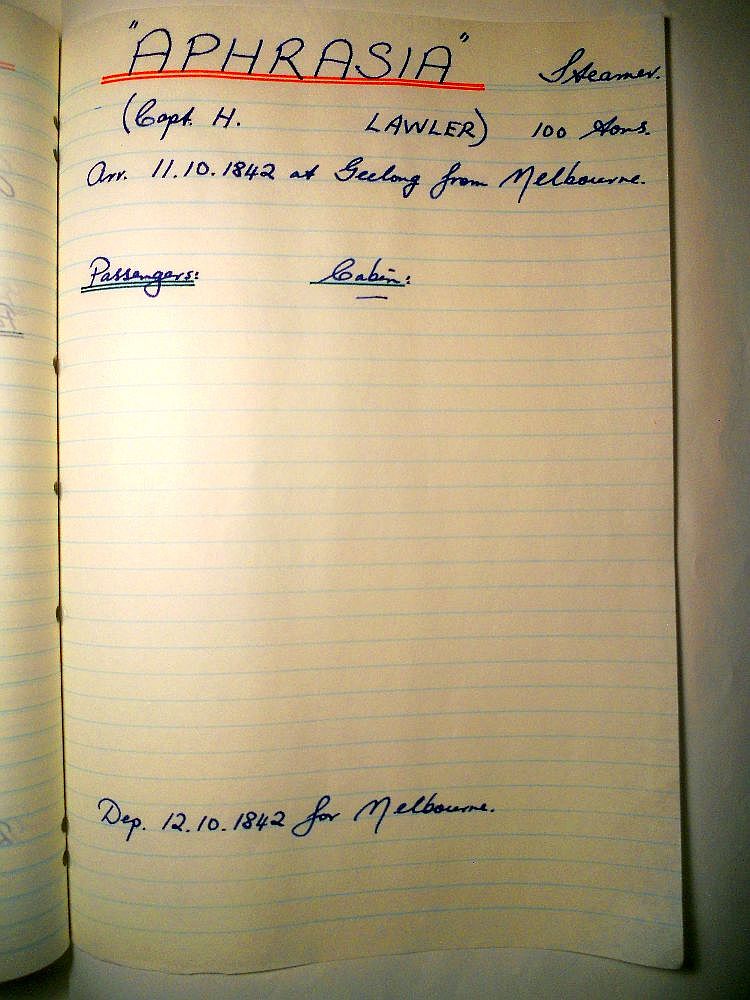 "APHRASIA" Steamer.
(Capt. H. LAWLER) 100 tons.
Arr. 11.10.1842 at Geelong from Melbourne.
Passengers: Cabin:
Dep. 12.10.1842 for Melbourne.